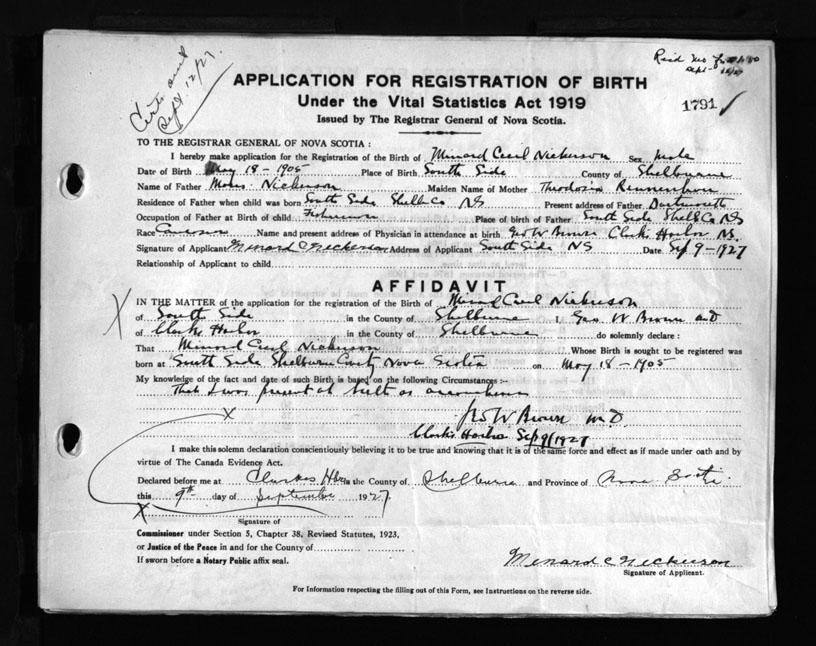 Certs. sent
Sept 12/27
Recd Mo
Sept
APPLICATION FOR REGISTRATION OF BIRTH
Under the Vital Statistics Act 1919
1791
Issued by The Registrar General of Nova Scotia.
TO THE REGISTRAR GENERAL OF NOVA SCOTIA :
I hereby make application for the Registration of the Birth of Minard Cecil Nickerson Sex male
Date of Birth May 18 - 1905 Place of Birth South Side County of Shelburne
Name of Father Nickerson Maiden Name of Mother Theodosia
Residence of Father when child was born South Side Shelb Co NS Present address of Father Dartmouth
Occupation of Father at Birth of child Fisherman Place of birth of Father South Side Shel Co NS
Race Name and present address of Physician in attendance at birth Geo W Brown Clarks Harbor NS.
Signature of Applicant Minard C Nickerson Address of Applicant South Side NS Date Sep 9 - 1927
Relationship of Applicant to child
AFFIDAVIT
IN THE MATTER of the application for the registration of the Birth of Minard Cecil Nickerson
of South Side in the County of Shelburne I, Geo W Brown MD
of Clarks Harbor in the County of Shelburne do solemnly declare :
That Minard Cecil Nickerson Whose Birth is sought to be registered was
born at South Side Shelburn County Nova Scotia on May 18 - 1905
My knowledge of the fact and date of such Birth is based on the following Circumstances :-
That I was present at birth as
X
Geo W Brown M.D.
Clarks Harbor Sep 9/1927
I make this solemn declaration conscientiously believing it to be true and knowing that it is of the same force and effect as if made under oath and by
virtue of The Canada Evidence Act.
Declared before me at Clarkes Hbr in the County of Shelburne and Province of Nova Scotia
this 9th day of September 1927.
X
Signature of
Commissioner under Section 5, Chapter 38, Revised Statutes, 1923,
or Justice of the Peace in and for the County of
If sworn before a Notary Public affix seal.
Minard C Nickerson
Signature of Applicant.
For Information respecting the filling out of this Form, see Instructions on the reverse side.